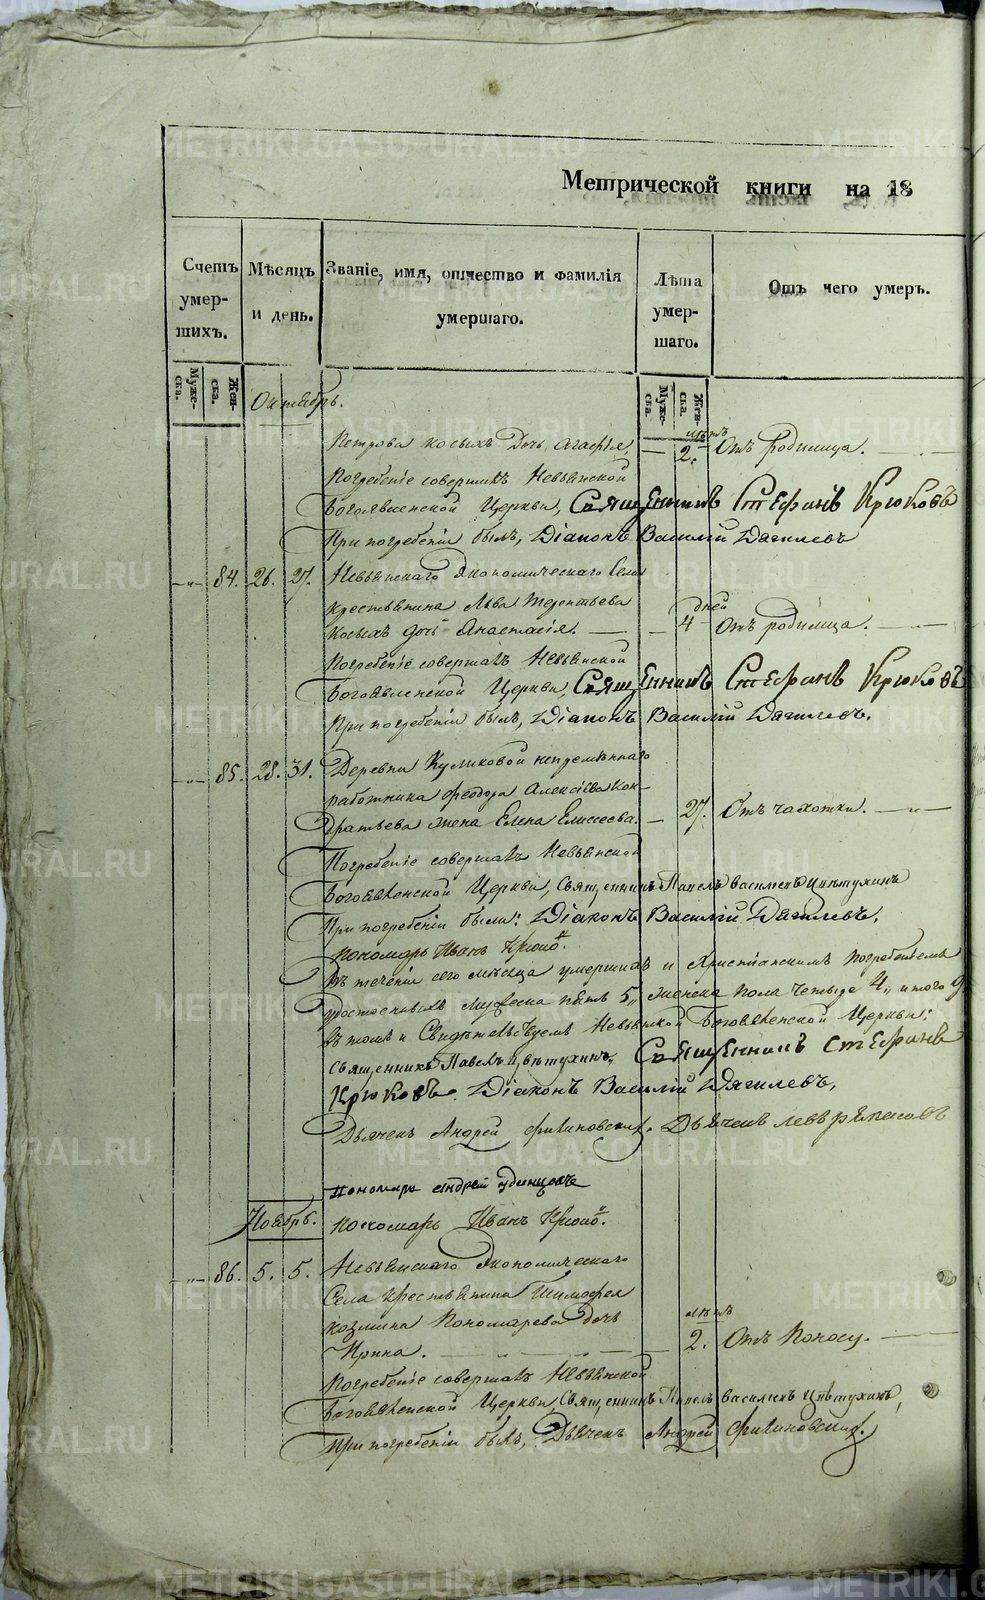 Метрической книги на 18
Счетъ умер-шихъ.
Мѣсяцъ и день.
Званіе, имя, отчество и фамилія умершаго.
Лѣта умер-шаго.
Отъ чего умеръ.
Муже-ска.
Жен-ска.
Муже-ска.
Жен-ска.
Октябрь.
Петрова Косыхъ Дочь Агафія. — 2. лѣтъ Отъ Родимца.
Погребеніе совершилъ Невьянской
Богоявленской Церкви, Священникъ Стефанъ Крюковъ
При погребеніи былъ, Діаконъ Василій Дягилевъ
84. 26. 27. Невьянскаго Экономическаго Села
крестьянина Льва Терентьева
Косыхъ дочь Анастасія. — 4 дней Отъ родимца.
Погребеніе совершалъ Невьянской
Богоявленской Церкви, Священникъ Стефанъ Крюковъ
При погребеніи былъ, Діаконъ Василій Дягилевъ.
85. 28. 31. Деревни Куликовой непремѣннаго
работника Феодора Алексіева Кон-
дратьева жена Елена Елисеева. — 27. Отъ чахотки.
Погребеніе совершалъ Невьянской
Богоявленской Церкви, Священникъ Павелъ Васильевъ Цвѣтухинъ
При погребеніи были: Діаконъ Василій Дягилевъ,
пономарь Иванъ
Въ теченіи сего мѣсяца умершихъ и Христіанскимъ погребеніемъ
удостоенныхъ мужеска пять 5, женска пола четыре 4, итого 9
въ томъ и Свидѣтельствуемъ Невьянской Богоявленской Церкви:
священникъ Павелъ Цвѣтухинъ, Священникъ Стефанъ
Крюковъ. Діаконъ Василій Дягилевъ,
Дьячекъ Андрей Фияловскій. Дьячекъ
Пономарь Андрей Удинцовъ
Ноябрь. пономарь Иванъ
86. 5. 5. Невьянскаго Экономическаго
Села крестьянина Тимофея
Козмина Пономарева дочь
Ирина. — 2. лѣтъ Отъ Поносу.
Погребеніе совершалъ Невьянской
Богоявленской Церкви Священникъ Павелъ Васильевъ Цвѣтухинъ,
При погребеніи былъ, Дьячекъ Андрей Фияловскій.
METRIKI.GASU-URAL.RU